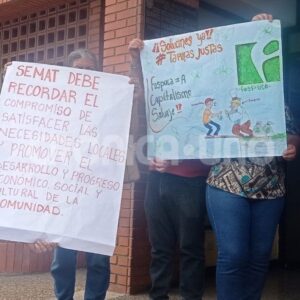 SEMAT DEBE
RECORDAR EL
COMPROMISO DE
SATISFACER LAS
NECESIDADES LOCALES
Y PROMOVER EL
DESARROLLO Y PROGRESO
ECONOMICO, SOCIAL Y
CULTURAL DE LA
COMUNIDAD.
¡¡Soluciones ya!!
# Tarifas justas
Fospuca = A
Capitalismo
Salvaje !!
fospuca